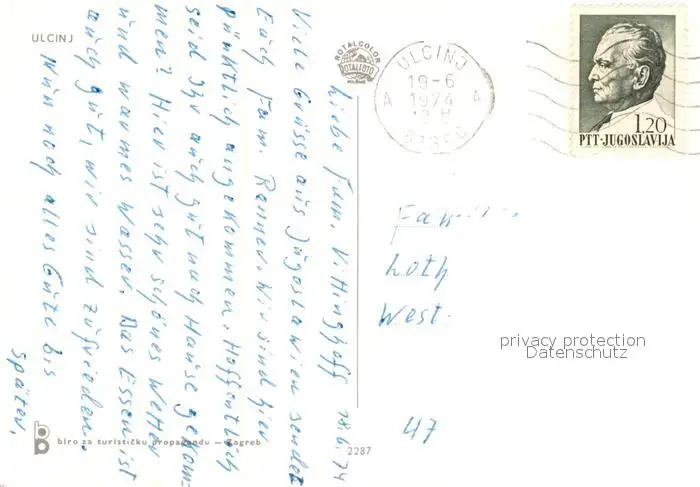 ULCINJ
ROTALCOLOR
ROTALFOTO
ULCINJ
18-6
1974
A A
PTT-JUGOSLAVIJA
1.20
Liebe Fam. Vittinghoff 18.6.74
Viele Grüsse aus Jugoslawien sendet
Euch Fam. Renner. Wir sind hier
pünktlich angekommen. Hoffentlich
seid Ihr auch gut nach Hause gekom=
men? Hier ist sehr schönes Wetter
und warmes Wasser. Das Essen ist
auch gut, wir sind zufrieden.
Nun noch alles Gute bis
später.
Fam
Loth
West
47
privacy protection
Datenschutz
biro za turističku propagandu — Zagreb
2287